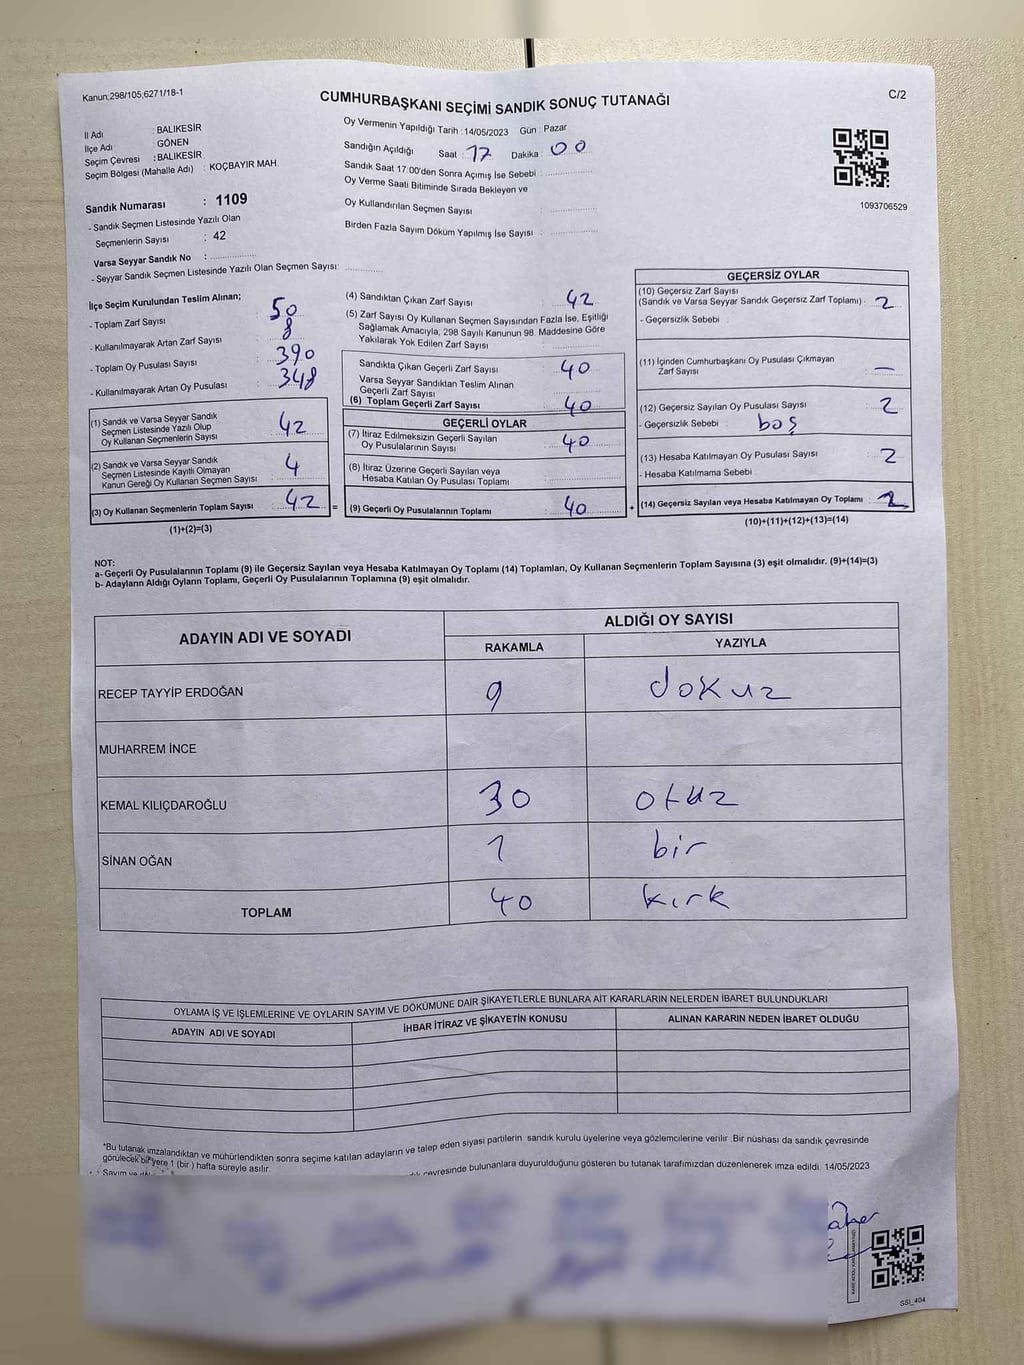 Kanun;298/105,6271/18-1
CUMHURBAŞKANI SEÇİMİ SANDIK SONUÇ TUTANAĞI
C/2
İl Adı : BALIKESİR
İlçe Adı : GÖNEN
Seçim Çevresi : BALIKESİR
Seçim Bölgesi (Mahalle Adı) : KOÇBAYIR MAH.
Sandık Numarası : 1109
- Sandık Seçmen Listesinde Yazılı Olan
Seçmenlerin Sayısı : 42
Varsa Seyyar Sandık No :
- Seyyar Sandık Seçmen Listesinde Yazılı Olan Seçmen Sayısı:
Oy Vermenin Yapıldığı Tarih :14/05/2023 Gün : Pazar
Sandığın Açıldığı Saat : 17 Dakika : 00
Sandık Saat 17:00'den Sonra Açımış İse Sebebi :
Oy Verme Saati Bitiminde Sırada Bekleyen ve
Oy Kullandırılan Seçmen Sayısı :
Birden Fazla Sayım Döküm Yapılmış İse Sayısı :
1093706529
İlçe Seçim Kurulundan Teslim Alınan;
- Toplam Zarf Sayısı : 50
- Kullanılmayarak Artan Zarf Sayısı : 8
- Toplam Oy Pusulası Sayısı : 390
- Kullanılmayarak Artan Oy Pusulası : 348
(1) Sandık ve Varsa Seyyar Sandık
Seçmen Listesinde Yazılı Olup
Oy Kullanan Seçmenlerin Sayısı : 42
(2) Sandık ve Varsa Seyyar Sandık
Seçmen Listesinde Kayıtlı Olmayan
Kanun Gereği Oy Kullanan Seçmen Sayısı : 4
(3) Oy Kullanan Seçmenlerin Toplam Sayısı : 42 =
(1)+(2)=(3)
(4) Sandıktan Çıkan Zarf Sayısı : 42
(5) Zarf Sayısı Oy Kullanan Seçmen Sayısından Fazla İse, Eşitliği
Sağlamak Amacıyla, 298 Sayılı Kanunun 98. Maddesine Göre
Yakılarak Yok Edilen Zarf Sayısı :
Sandıkta Çıkan Geçerli Zarf Sayısı : 40
Varsa Seyyar Sandıktan Teslim Alınan
Geçerli Zarf Sayısı :
(6) Toplam Geçerli Zarf Sayısı : 40
GEÇERLİ OYLAR
(7) İtiraz Edilmeksizin Geçerli Sayılan
Oy Pusulalarının Sayısı : 40
(8) İtiraz Üzerine Geçerli Sayılan veya
Hesaba Katılan Oy Pusulası Toplamı :
(9) Geçerli Oy Pusulalarının Toplamı : 40 +
GEÇERSİZ OYLAR
(10) Geçersiz Zarf Sayısı
(Sandık ve Varsa Seyyar Sandık Geçersiz Zarf Toplamı) : 2
- Geçersizlik Sebebi :
(11) İçinden Cumhurbaşkanı Oy Pusulası Çıkmayan
Zarf Sayısı : —
(12) Geçersiz Sayılan Oy Pusulası Sayısı : 2
- Geçersizlik Sebebi : boş
(13) Hesaba Katılmayan Oy Pusulası Sayısı : 2
- Hesaba Katılmama Sebebi :
(14) Geçersiz Sayılan veya Hesaba Katılmayan Oy Toplamı : 2
(10)+(11)+(12)+(13)=(14)
NOT:
a- Geçerli Oy Pusulalarının Toplamı (9) ile Geçersiz Sayılan veya Hesaba Katılmayan Oy Toplamı (14) Toplamları, Oy Kullanan Seçmenlerin Toplam Sayısına (3) eşit olmalıdır. (9)+(14)=(3)
b- Adayların Aldığı Oyların Toplamı, Geçerli Oy Pusulalarının Toplamına (9) eşit olmalıdır.
ADAYIN ADI VE SOYADI
ALDIĞI OY SAYISI
RAKAMLA YAZIYLA
RECEP TAYYİP ERDOĞAN 9 dokuz
MUHARREM İNCE
KEMAL KILIÇDAROĞLU 30 otuz
SİNAN OĞAN 1 bir
TOPLAM 40 kırk
OYLAMA İŞ VE İŞLEMLERİNE VE OYLARIN SAYIM VE DÖKÜMÜNE DAİR ŞİKAYETLERLE BUNLARA AİT KARARLARIN NELERDEN İBARET BULUNDUKLARI
ADAYIN ADI VE SOYADI İHBAR İTİRAZ VE ŞİKAYETİN KONUSU ALINAN KARARIN NEDEN İBARET OLDUĞU
*Bu tutanak imzalandıktan ve mühürlendikten sonra seçime katılan adayların ve talep eden siyasi partilerin sandık kurulu üyelerine veya gözlemcilerine verilir. Bir nüshası da sandık çevresinde
görülecek bir yere 1 (bir) hafta süreyle asılır.
çevresinde bulunanlara duyurulduğunu gösteren bu tutanak tarafımızdan düzenlenerek imza edildi. 14/05/2023
SSI_404